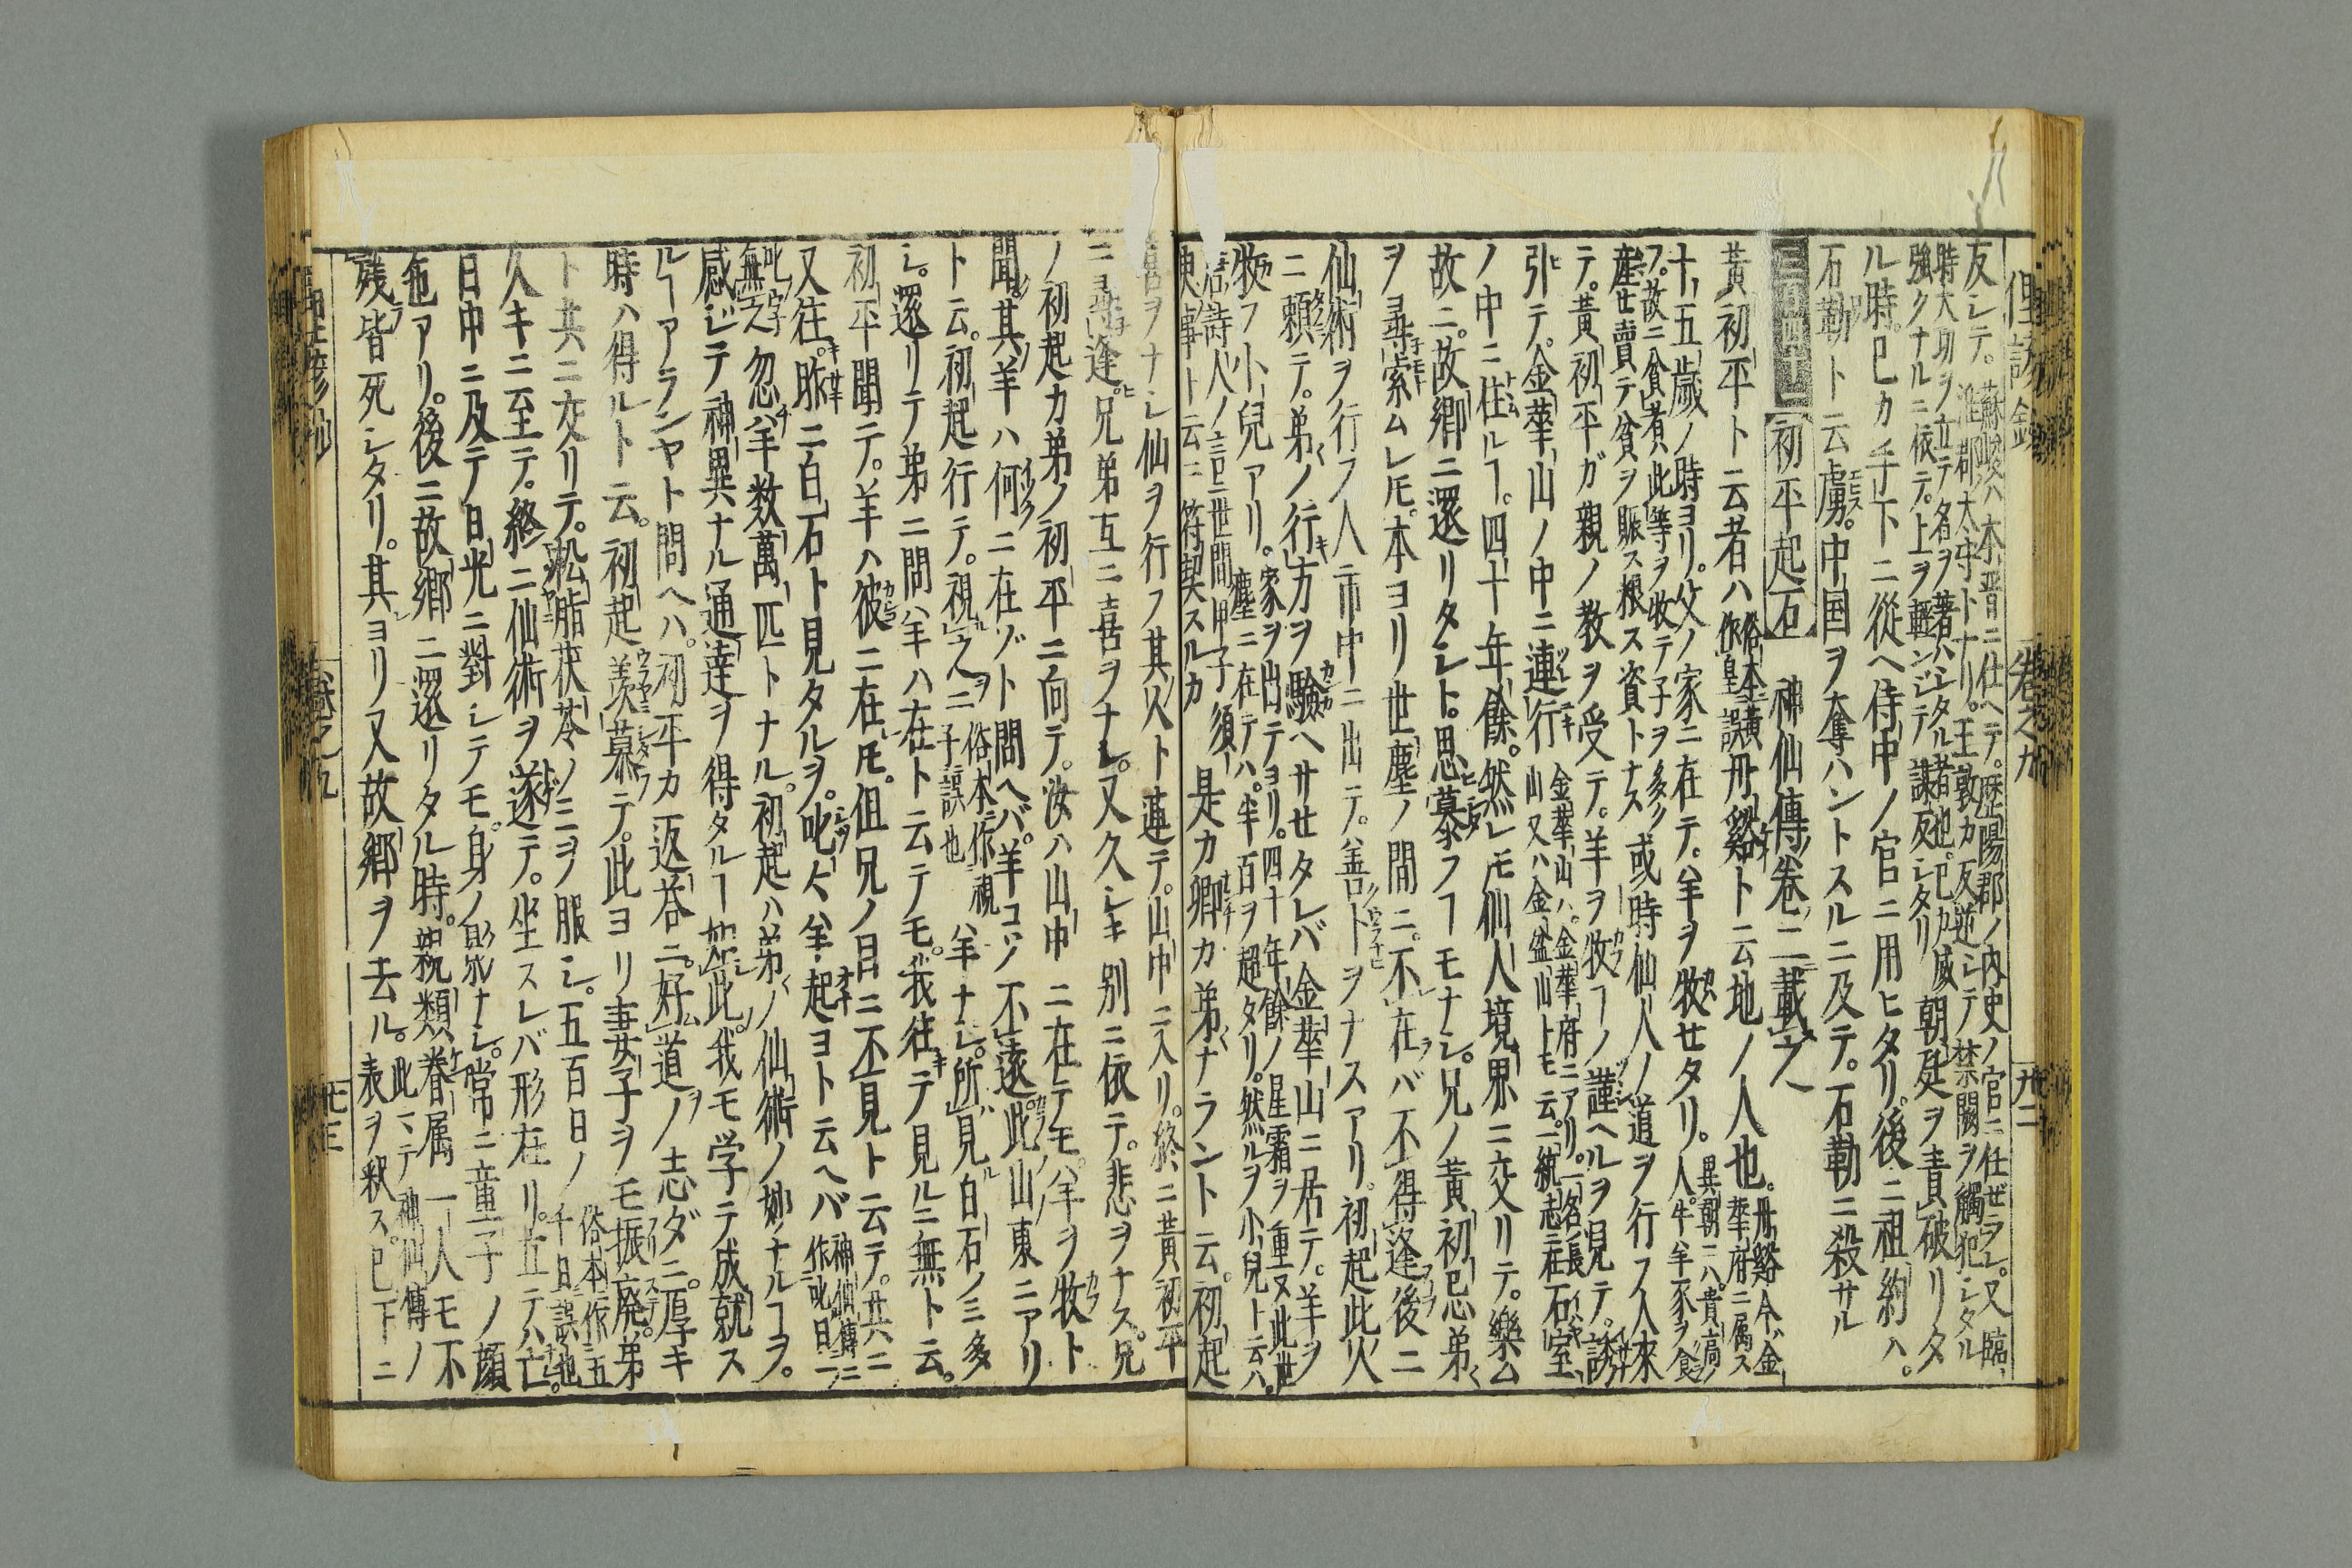 卷之九
反シテ。蘇峻ハ本晋ニ仕ヘテ。歴陽郡ノ内史ノ官ニ任ゼラレ。又臨
淮郡太守トナリ。王敦カ反逆シテ禁闕ヲ觸犯シタル
時大功ヲ立テ名ヲ著ハシタル者也。已カ威
強クナルニ依テ。上ヲ輕ンジテ謀反シタリ
朝廷ヲ責破リタ
ル時。己カ手下ニ從ヘ侍中ノ官ニ用ヒタリ。後ニ祖約ハ。
石勒ト云虜。中国ヲ奪ハントスルニ及テ。石勒ニ殺サル
初平起石 神仙傳卷ノ二載之
黃初平ト云者ハ俗本ニ黃
作皇誤
丹谿ト云地ノ人也。丹谿今ハ金
華府ニ属ス
十五歳ノ時ヨリ。父ノ家ニ在テ。羊ヲ牧セタリ。異朝ニハ。貴高ノ
人。牛羊豕ヲ食
フ。故ニ貧者此等ヲ牧テ子ヲ多ク
産セ賣テ貧ヲ賑ス根ス資トナス
或時仙人ノ道ヲ行フ人來
テ。黃初平ガ親ノ教ヲ受テ。羊ヲ牧フヿノ謹ヘルヲ見テ。誘
引テ。金華山ノ中ニ連行金華山ハ。金華府ニアリ。一名長
山又ハ金盆山トモ云。一統志ニ在
石室
ノ中ニ住ルヿ。四十年餘。然レモ仙人境界ニ交リテ。樂ム
故ニ。故鄉ニ還リタレト。思慕フヿモナシ。兄ノ黃初起弟
ヲ尋索ムレ𪜈。本ヨリ世塵ノ間ニ。不在バ不得逢後ニ
仙術ヲ行フ人市中ニ出テ。善トヲナスアリ。初起此人
ニ賴テ。弟ノ行方ヲ驗ヘサセタレバ金華山ニ居テ。羊ヲ
牧フ小兒アリ。家ヲ出テヨリ。四十年餘ノ星霜ヲ重又此世
塵ニ在テハ。半百ヲ超タリ。然ルヲ小兒ト云ハ。
唐詩人ノ言ニ世間甲子須
臾事ト云ニ符契スルカ
是カ卿カ弟ナラント云。初起
喜ヲナシ仙ヲ行フ其人ト連テ。山中ニ入リ。終ニ黃初平
ニ尋逢。兄弟互ニ喜ヲナシ。又久シキ別ニ依テ。悲ヲナス。兄
ノ初起カ弟ノ初平ニ向テ。汝ハ山中ニ在テモ。羊ヲ牧ト
聞。其羊ハ何ニ在ゾト問ヘバ。羊コソ不遠此山東ニアリ
ト云。初起行テ。視之俗本ニ作視
ニ子誤也
羊ナシ。所見白石ノミ多
シ。還リテ弟ニ問ハ羊ハ在ト云テモ。我往テ見ルニ無ト云。
初平聞テ。羊ハ彼ニ在𪜈。但兄ノ目ニ不見ト云テ。共ニ
又往。昨ニ白石ト見タルヲ。叱〻羊起ヨト云ヘバ神仙傳ニ
作叱曰ニ
叱字
無之
忽ハ羊数萬匹トナル。初起ハ弟ノ仙術ノ妙ナルヿヲ。
感ジテ神異ナル通達ヲ得タルヿ如此。我モ学テ成就ス
ルヿアランヤト問ヘハ。初平カ返荅ニ。好道ノ志ダニ。厚キ
時ハ得ルト云。初起羨慕テ。此ヨリ妻子ヲモ振廃。弟
ト共ニ交リテ。松脂茯苓ノミヲ服シ。五百日ノ俗本作五
千日誤也
久キニ至テ。終ニ仙術ヲ遂テ。坐スレバ形在リ。立テハ亡。
日中ニ及テ日光ニ對シテモ。身ノ影ナシ。常ニ童子ノ顔
色アリ。後ニ故鄉ニ還リタル時。親類眷属一人モ不
残皆死シタリ。其ヨリ又故鄉ヲ去ル。此ニテ神仙傳ノ
表ヲ釈ス。已下ニ